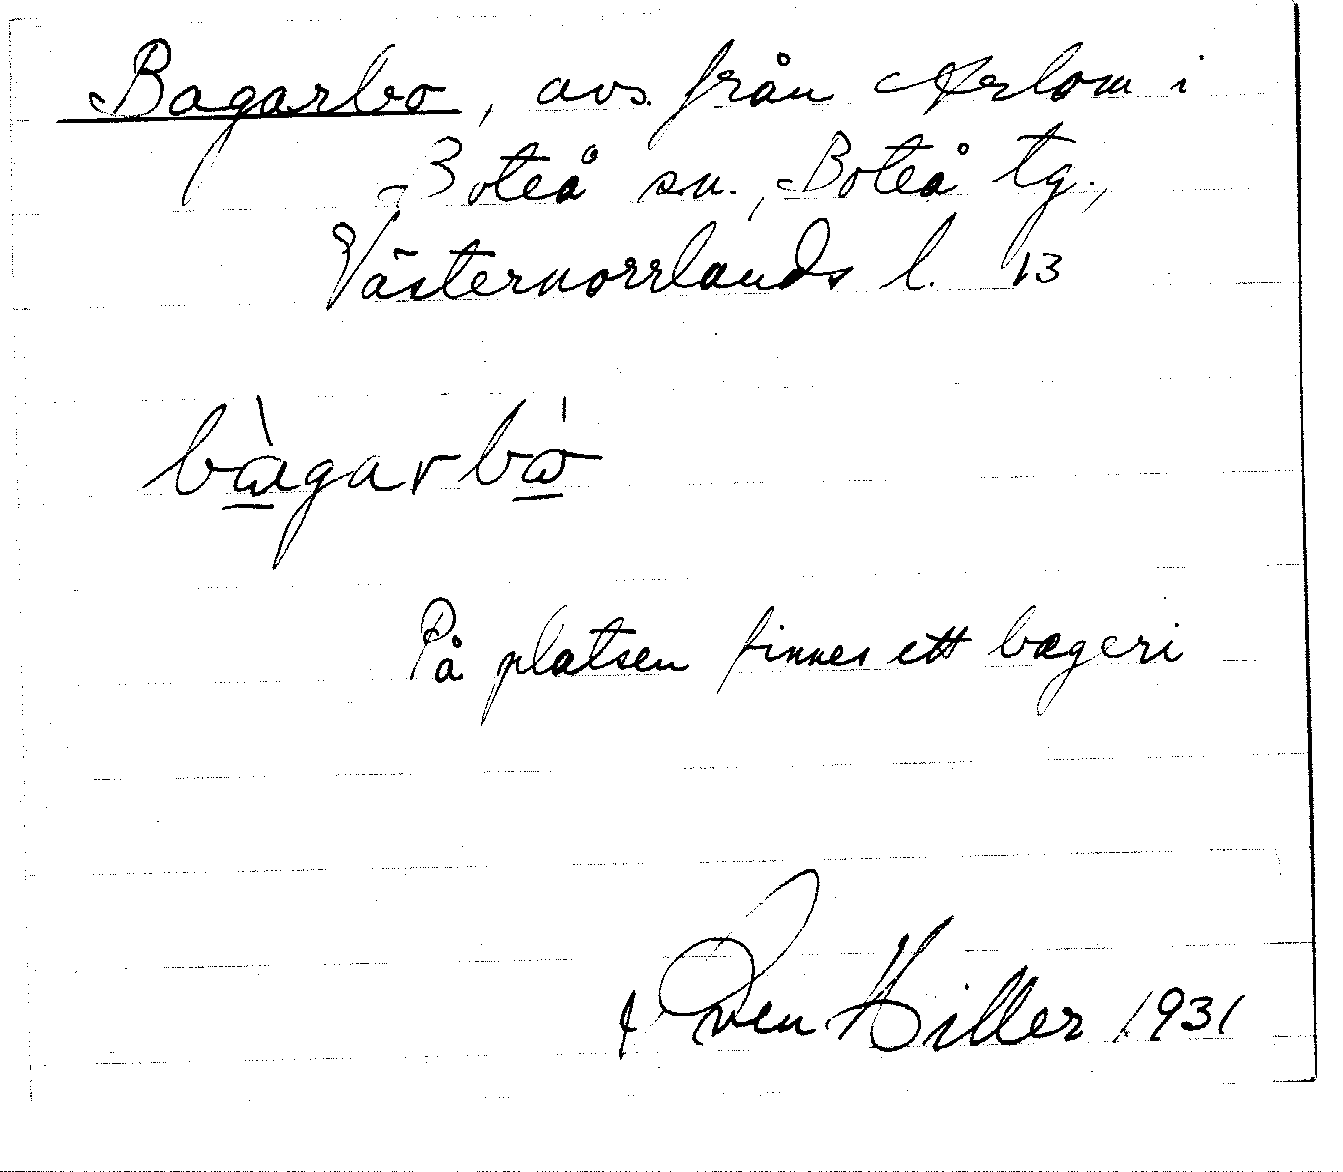 Bagarbo, avs. från Aslom i
Boteå sn., Boteå tg.,
Västernorrlands l. 13
bàgarbó
På platsen finnes ett bageri
Sven Hiller 1931